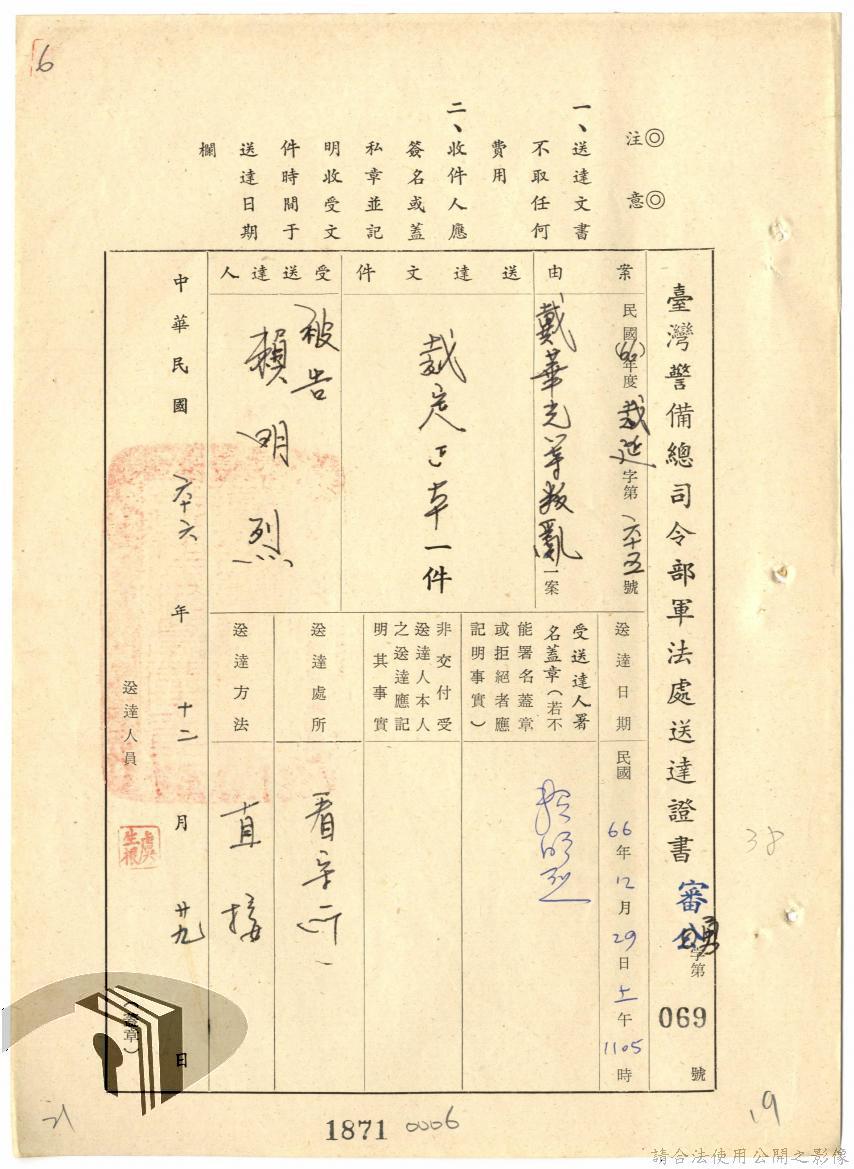 6
◎注　意◎
一、送達文書
不取任何
費用
二、收件人應
簽名或蓋
私章並記
明收受文
件時間于
送達日期
欄
臺灣警備總司令部軍法處送達證書
審
字第
069
號
案由
民國(66)年度裁延字第六十五號
戴華光等叛亂一案
送達文件
裁定正本一件
受送達人
被告
賴明烈
送達日期
民國66年12月29日上午1105時
受送達人署
名蓋章(若不
能署名蓋章
或拒絕者應
記明事實)
賴明烈
非交付受
送達人本人
之送達應記
明其事實
送達處所
看守所
送達方法
直接
中華民國 六十六 年 十二 月 廿九 日
送達人員
虞生根
(蓋章)
38
19
21
1871
0006
請合法使用公開之影像